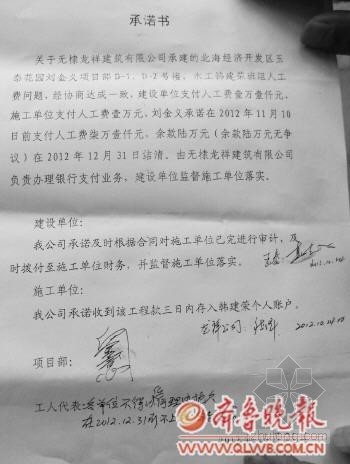 承诺书
关于无棣龙祥建筑有限公司承建的北海经济开发区玉
泰花园刘金义项目部D-1、D-2号楼，木工韩建荣班组人工
费问题，经协商达成一致，建设单位支付人工费壹万壹仟元、
施工单位支付人工费壹万元，刘金义承诺在2012年11月10
日前支付人工费柒万壹仟元，余款陆万元（余款陆万元无争
议）在2012年12月31日结清。由无棣龙祥建筑有限公司
负责办理银行支付业务，建设单位监督施工单位落实。
建设单位：
我公司承诺及时根据合同对施工单位已完进行审计，及
时拨付至施工单位财务，并监督施工单位落实。
2012.10.24
施工单位：
我公司承诺收到该工程款三日内存入韩建荣个人账户。
龙祥公司：
2012.10.24
项目部：
工人代表：
在2012.12.31前不上
齐鲁晚报
WWW.QLWB.COM.CN